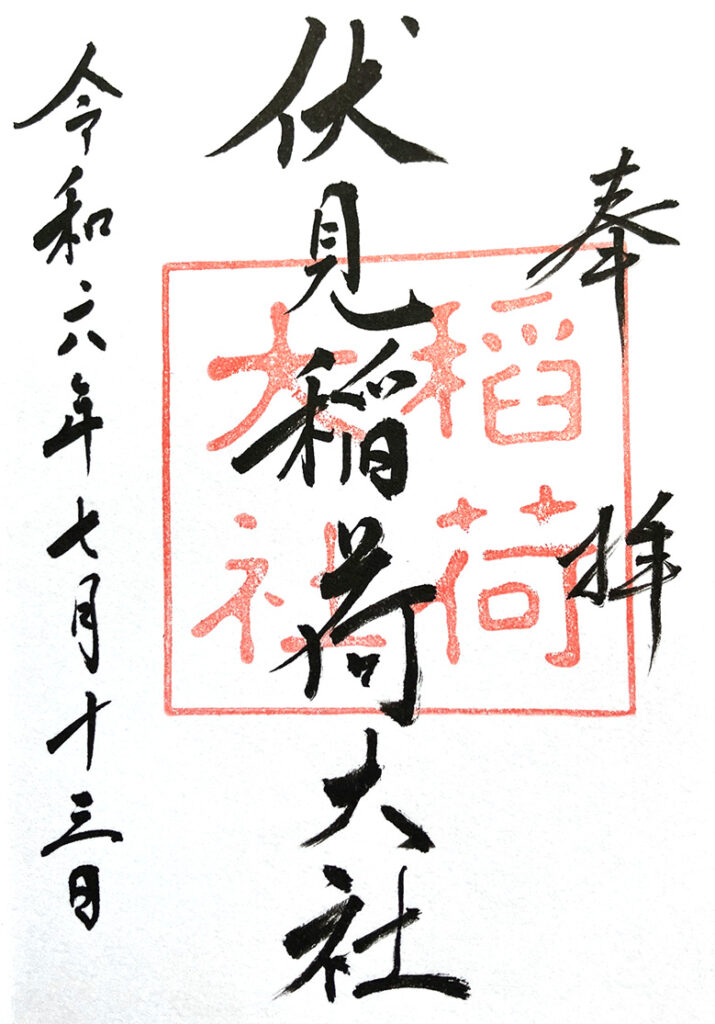 奉拝
伏見稲荷大社
稲荷
大社
令和六年七月十三日